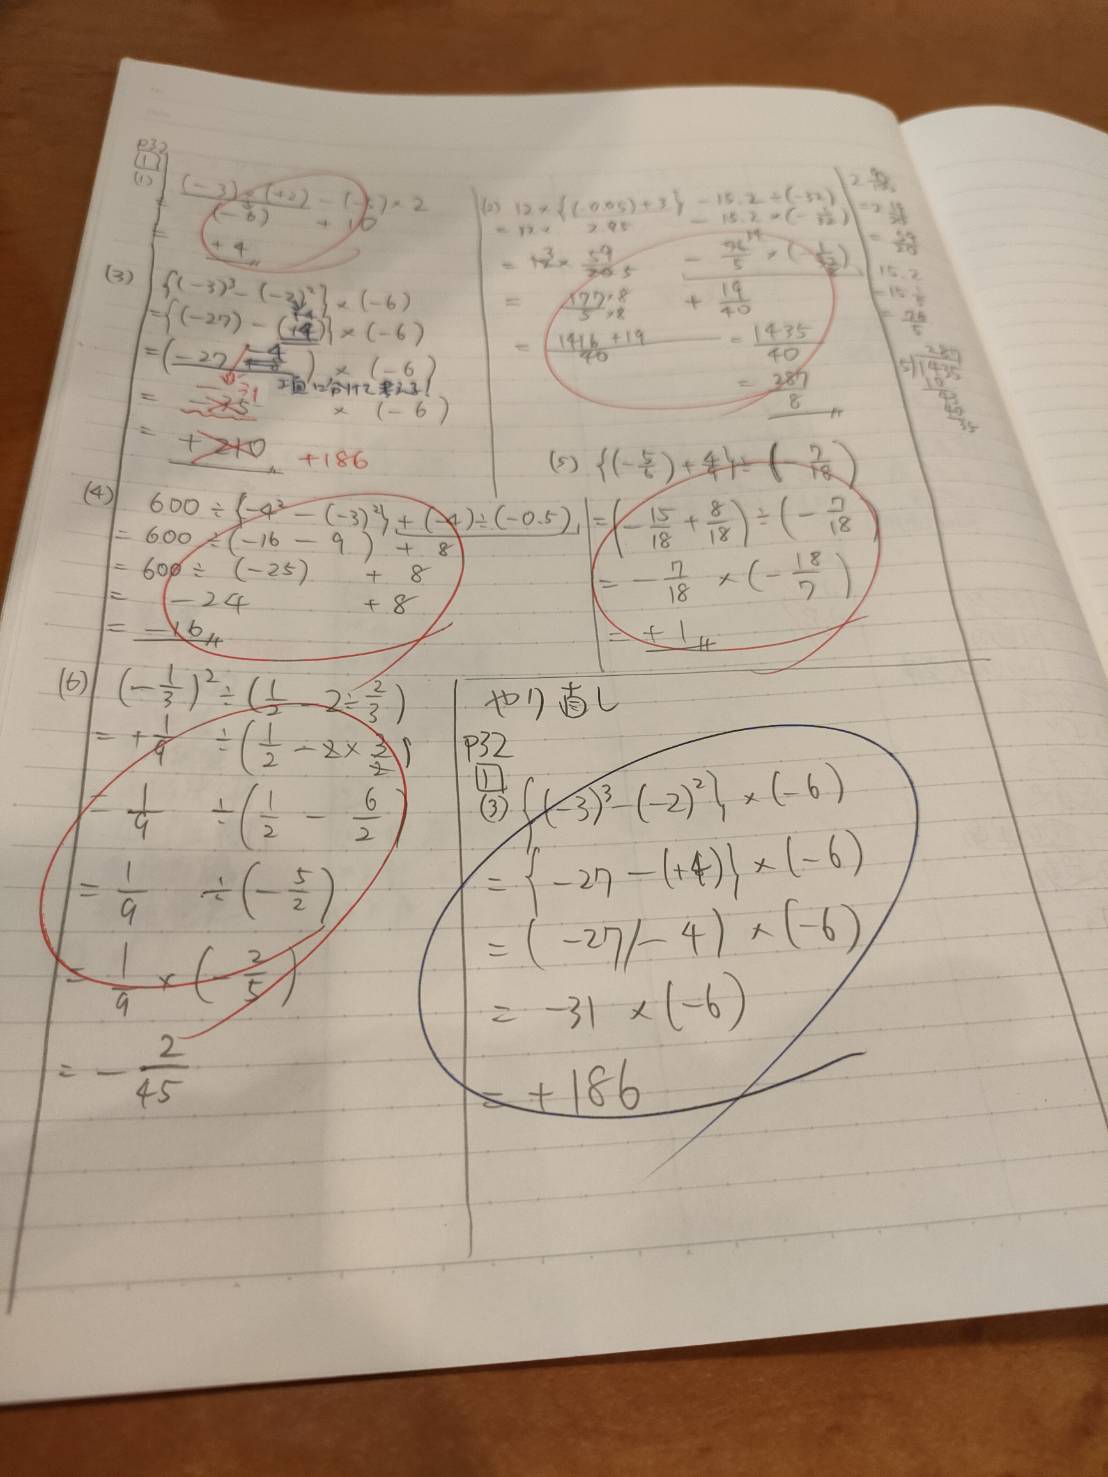 p32
1
(1) (-3)×(+2) - (-5)×2
= (-6) + 10
= +4
(2) 12×{(-0.05)+3} - 15.2÷(-32)
= 12× 2.95 - 15.2×(-1/32)
= 12 3 × 59/20 5 - 76 19/5 ×(-1/32)
= 177×8/5×8 + 19/40
= 1416+19/40 = 1435/40
= 287/8
= 59/20
15.2
= 76/5
287
5)1435
10
43
40
35
(3) {(-3)³-(-2)²}×(-6)
={(-27)-(+4)}×(-6)
=(-27 -4)×(-6)
-31
= ×(-6)
= +210 +186
(4) 600÷{-4²-(-3)²}+(-4)÷(-0.5)
= 600÷(-16-9) + 8
= 600÷(-25) + 8
= -24 +8
= -16
(5) {(-5/6)+4/9}÷(-7/18)
=(-15/18+8/18)÷(-7/18)
= -7/18×(-18/7)
= +1
(6) (-1/3)²÷(1/2-2÷2/3)
= +1/9 ÷(1/2-2×3/2)
= 1/9 ÷(1/2-6/2)
= 1/9 ÷(-5/2)
= 1/9×(-2/5)
= -2/45
やり直し
p32
1
(3) {(-3)³-(-2)²}×(-6)
= {-27-(+4)}×(-6)
= (-27/-4)×(-6)
= -31×(-6)
= +186